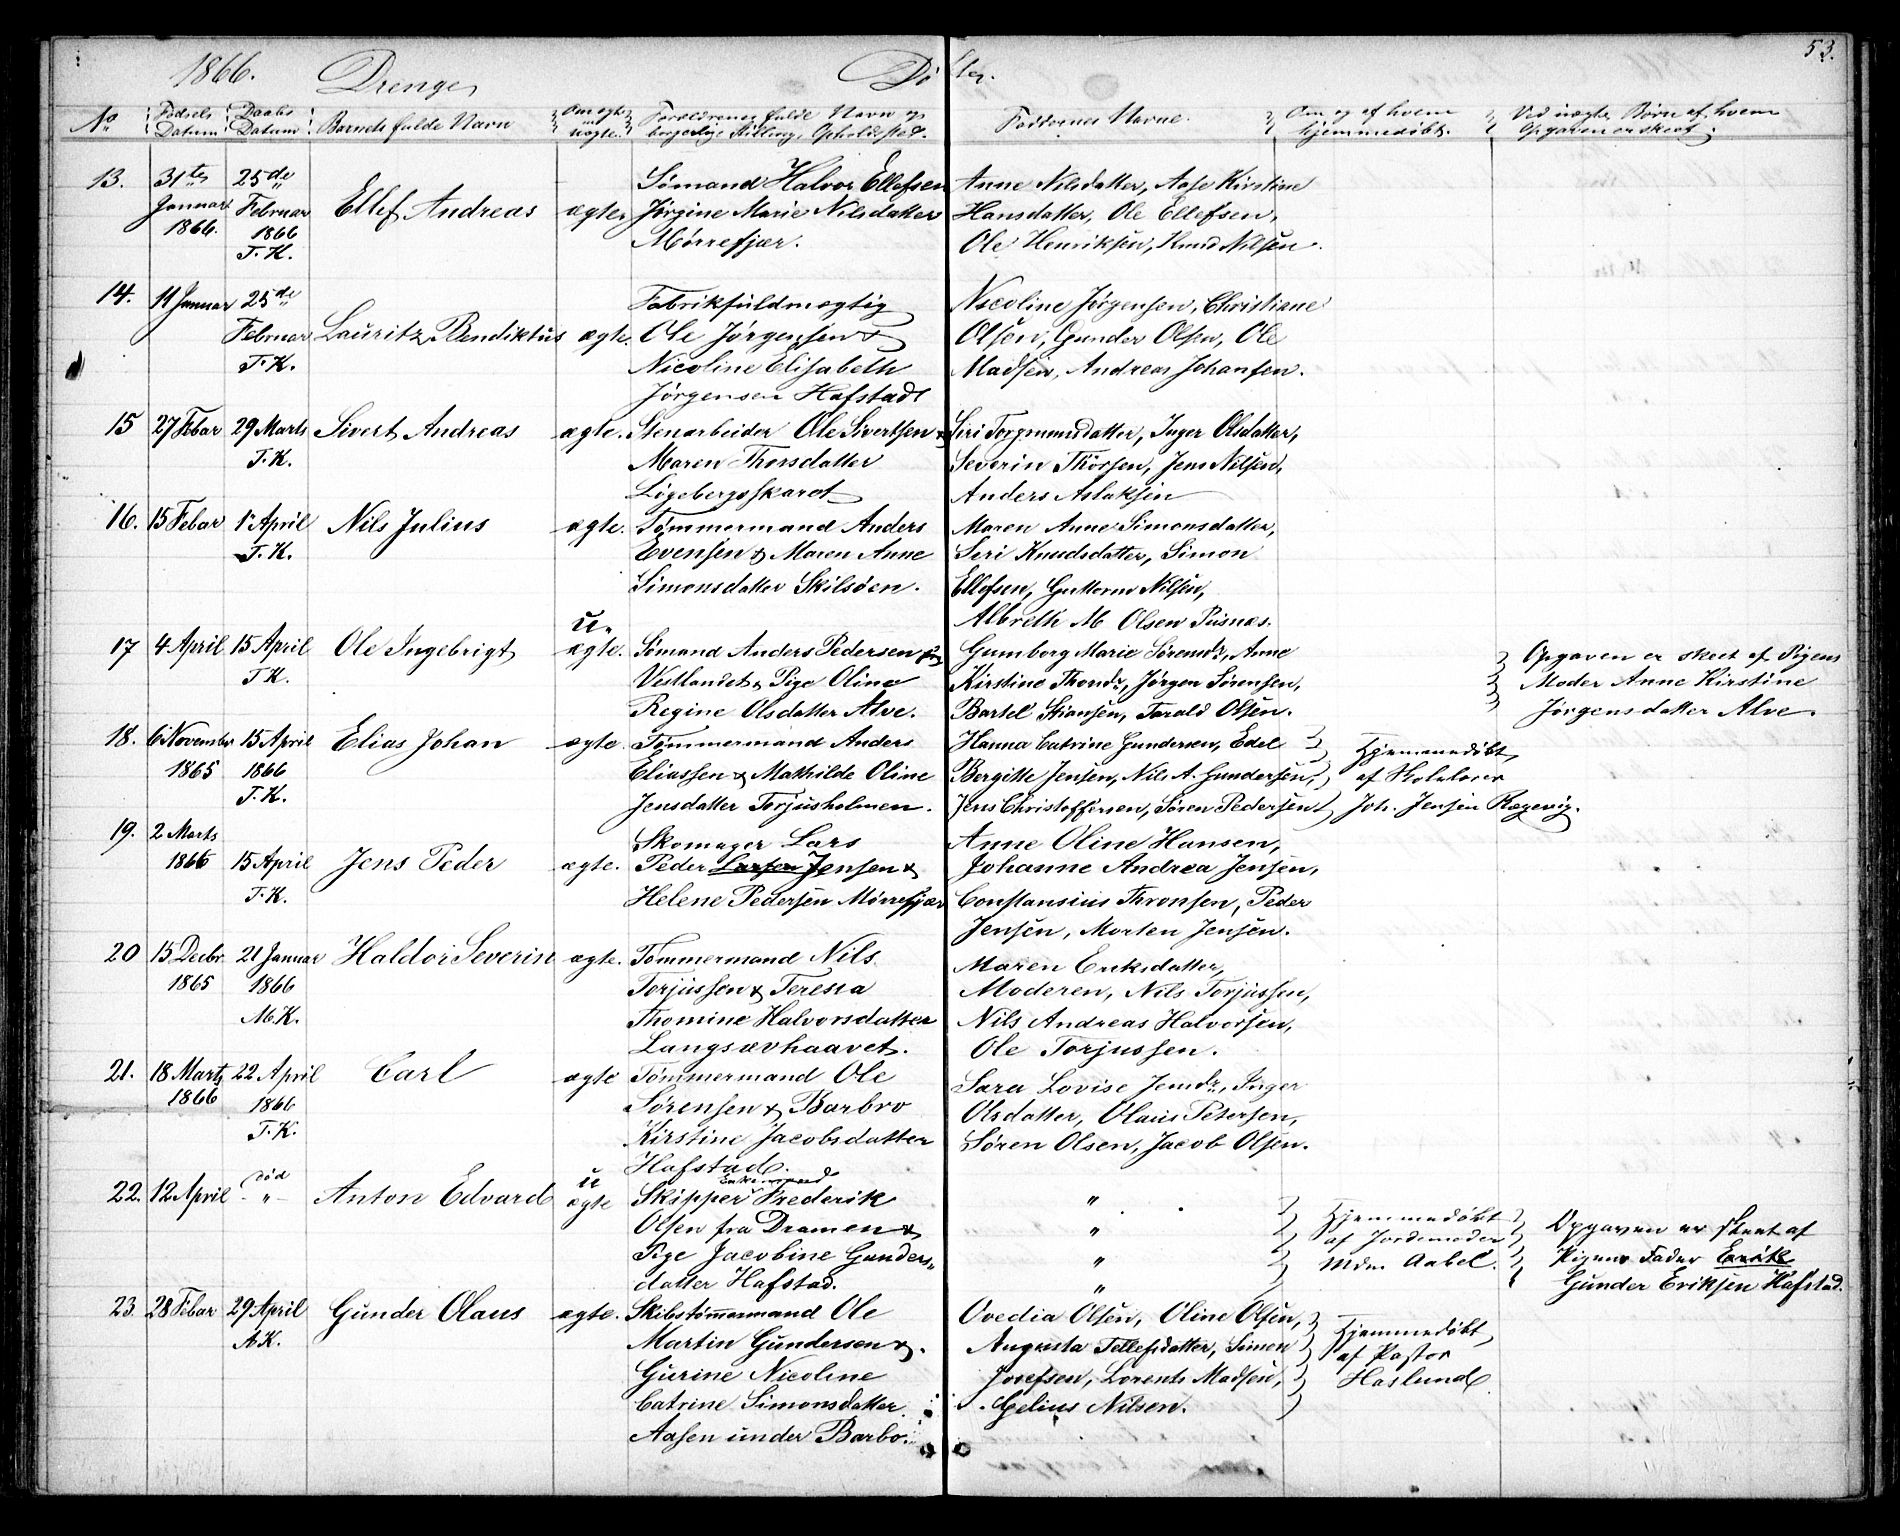 53.
1866. Drenge Døbte.
No Fødsels Datum Daabs Datum Barnets fulde Navn Om ægte uægte. Forældrenes fulde Navn og borgerlige Stilling, Opholdssted. Faddernes Navne. Om og af hvem hjemmedøbt. Ved uægte Børn af hvem Opgaven er skeet.
13. 31te 25de Sømand Halvor Ellefsen Anne Nilsdatter, Aase Kirstine
Januar Februar Ellef Andreas ægte Jørgine Marie Nilsdatter Hansdatter, Ole Ellefsen,
1866. 1866 Mørrefjær. Ole Henriksen, Knud Nilsen.
T. K.
14. 11 Januar 25de Fabrikfuldmægtig Nicoline Jørgensen, Christiane
Februar Lauritz Bendiktus ægte. Ole Jørgensen & Olsen, Gunder Olsen, Ole
T. K. Nicoline Elisabeth Madsen, Andreas Johansen.
Jørgensen Hafstad
15 27 Febar 29 Marts Sivert Andreas ægte. Stenarbeider Ole Sivertsen & Siri Torgmunsdatter, Inger Olsdatter,
T. K. Maren Thorsdatter Severin Thorsen, Jens Nilsen,
Ligebergsskaret Anders Aslaksen
16. 15 Febar 1 April Nils Julius ægte. Tømmermand Anders Maren Anne Simonsdatter,
T. K. Evensen & Maren Anne Seri Knudsdatter, Simon
Simonsdatter Skilsøen. Ellefsen, Guttorm Nilsen,
Albreth M Olsen Pusnæs.
u.
17 4 April 15 April Ole Ingebrigt ægte. Sømand Anders Pedersen fra Gumborg Marie Sørensdr, Anne Opgaven er skeet af Pigens
T K. Vestlandet & Pige Oline Kirstine Thomdr, Jørgen Sørensen, Moder Anne Kirstine
Regine Olsdatter Alve. Bartel Stiansen, Tarald Olsen. Jørgensdatter Alve.
18. 6 November 15 April Elias Johan ægte. Tømmermand Anders Hanna Catrine Gundersen, Edel Hjemmedøbt
1865 1866 Eliassen & Mathilde Oline Bergitte Jensen, Nils A. Gundersen, af Skolelærer
T. K. Jensdatter Torjusholmen. Jens Christoffersen, Søren Pedersen Joh. Jensen Rægevig.
19. 2 Marts Skomager Lars Anne Oline Hansen,
1866 15 April Jens Peder ægte. Peder Larsen Jensen & Johanne Andrea Jensen,
T. K. Helene Pedersen Mørrefjær Constansius Thronsen, Peder
Jensen, Morten Jensen.
20 15 Decbr 21 Januar Haldor Severin ægte. Tømmermand Nils Maren Eriksdatter,
1865 1866 Torjussen & Teresia Moderen, Nils Torjussen,
M. K. Thomine Halvorsdatter Nils Andreas Halvorsen,
Langsævhaavet. Ole Torjussen.
21. 18 Marts 22 April Carl ægte Tømmermand Ole Sara Lovise Jensdr, Inger
1866 1866 Sørensen & Barbro Olsdatter, Olaus Petersen,
T. K. Kirstine Jacobsdatter Søren Olsen, Jacob Olsen.
Hafstad.
død u Enkemand
22. 12 April - " - Anton Edvard ægte Skipper Frederik " Hjemmedøbt Opgaven er skeet af
Olsen fra Dramen & " af Jordemoder Pigens Fader Erik
Pige Jacobine Gunders- " Mdm. Aabel. Gunder Eriksen Hafstad.
datter Hafstad. "
23. 28 Febar 29 April Gunder Olaus ægte. Skibstømmermand Ole Ovedia Olsen, Oline Olsen, Hjemmedøbt
A. K. Martin Gundersen & Augusta Tellefsdatter, Simon af Pastor
Gurine Nicoline Josefsen, Lorents Madsen, Haslund.
Catrine Simonsdatter Gelius Nilsen.
Aasen under Barbo.